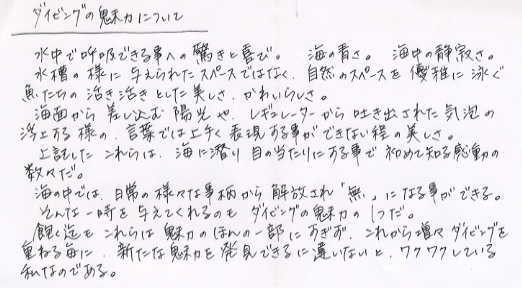 ダイビングの魅力について
水中で呼吸できる事への驚きと喜び。 海の青さ。 海中の静寂さ。
水槽の様に与えられたスペースではなく、自然のスペースを優雅に泳ぐ
魚たちの活き活きとした美しさ、かわいらしさ。
海面から差し込む陽光や、レギュレーターから吐き出された気泡の
浮上する様の、言葉では上手く表現する事ができない程の美しさ。
上記したこれらは、海に潜り目の当たりにする事で初めて知る感動の
数々だ。
海の中では、日常の様々な事柄から解放され「無」になる事ができる。
そんな一時を与えてくれるのもダイビングの魅力の1つだ。
飽く迄もこれらは魅力のほんの一部にすぎず、これから増々ダイビングを
重ねる毎に、新たな魅力を発見できるに違いないと、ワクワクしている
私なのである。